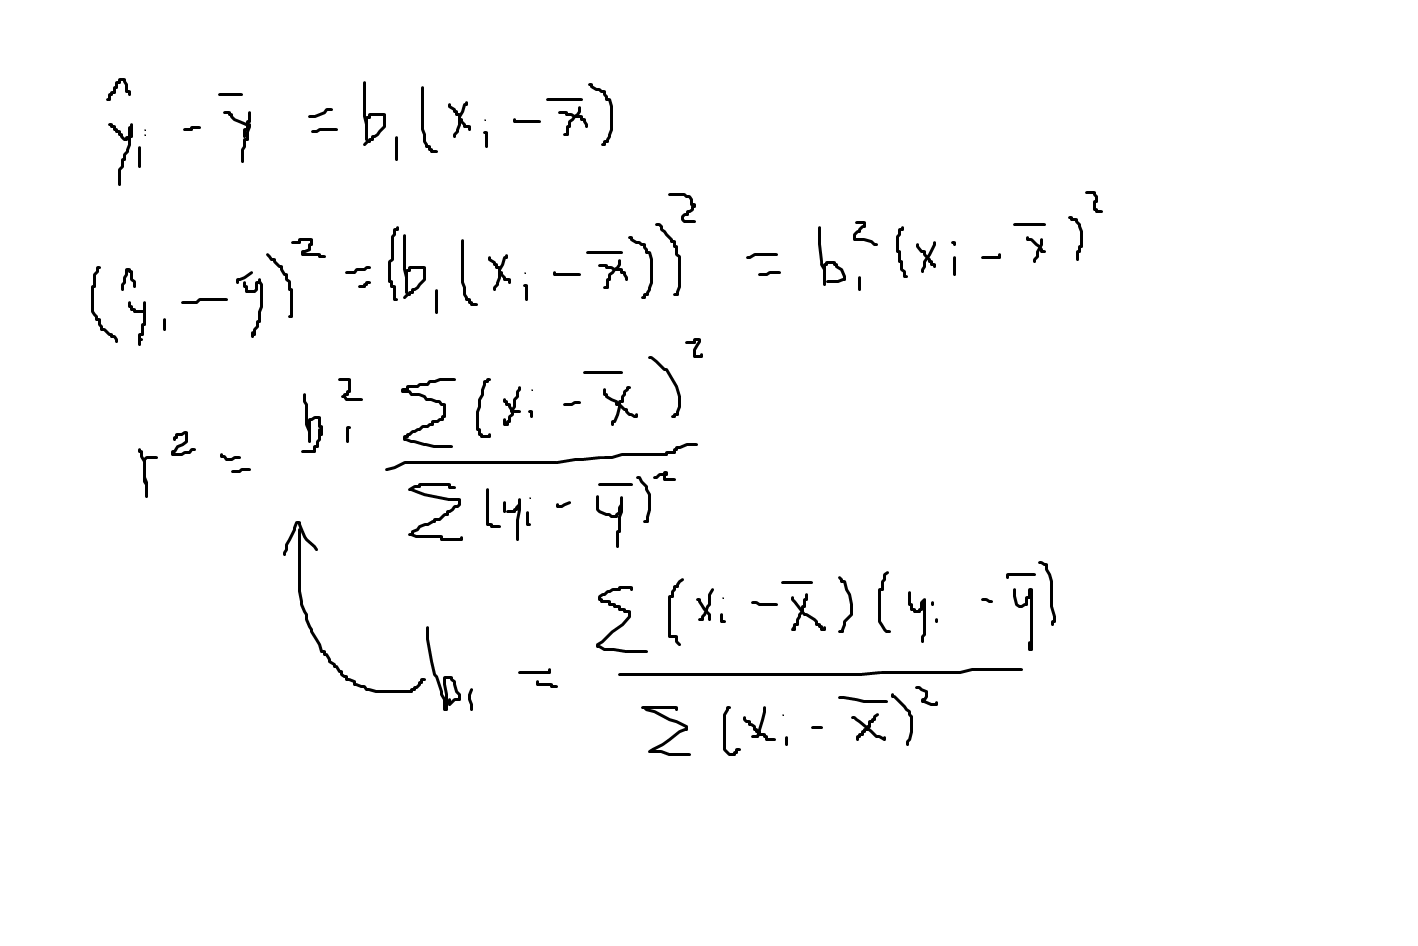 ŷᵢ - ȳ = b₁(xᵢ - x̄)
(ŷᵢ - ȳ)² = (b₁(xᵢ - x̄))² = b₁²(xᵢ - x̄)²
r² = b₁² Σ(xᵢ - x̄)² / Σ(yᵢ - ȳ)²
b₁ = Σ(xᵢ - x̄)(yᵢ - ȳ) / Σ(xᵢ - x̄)²